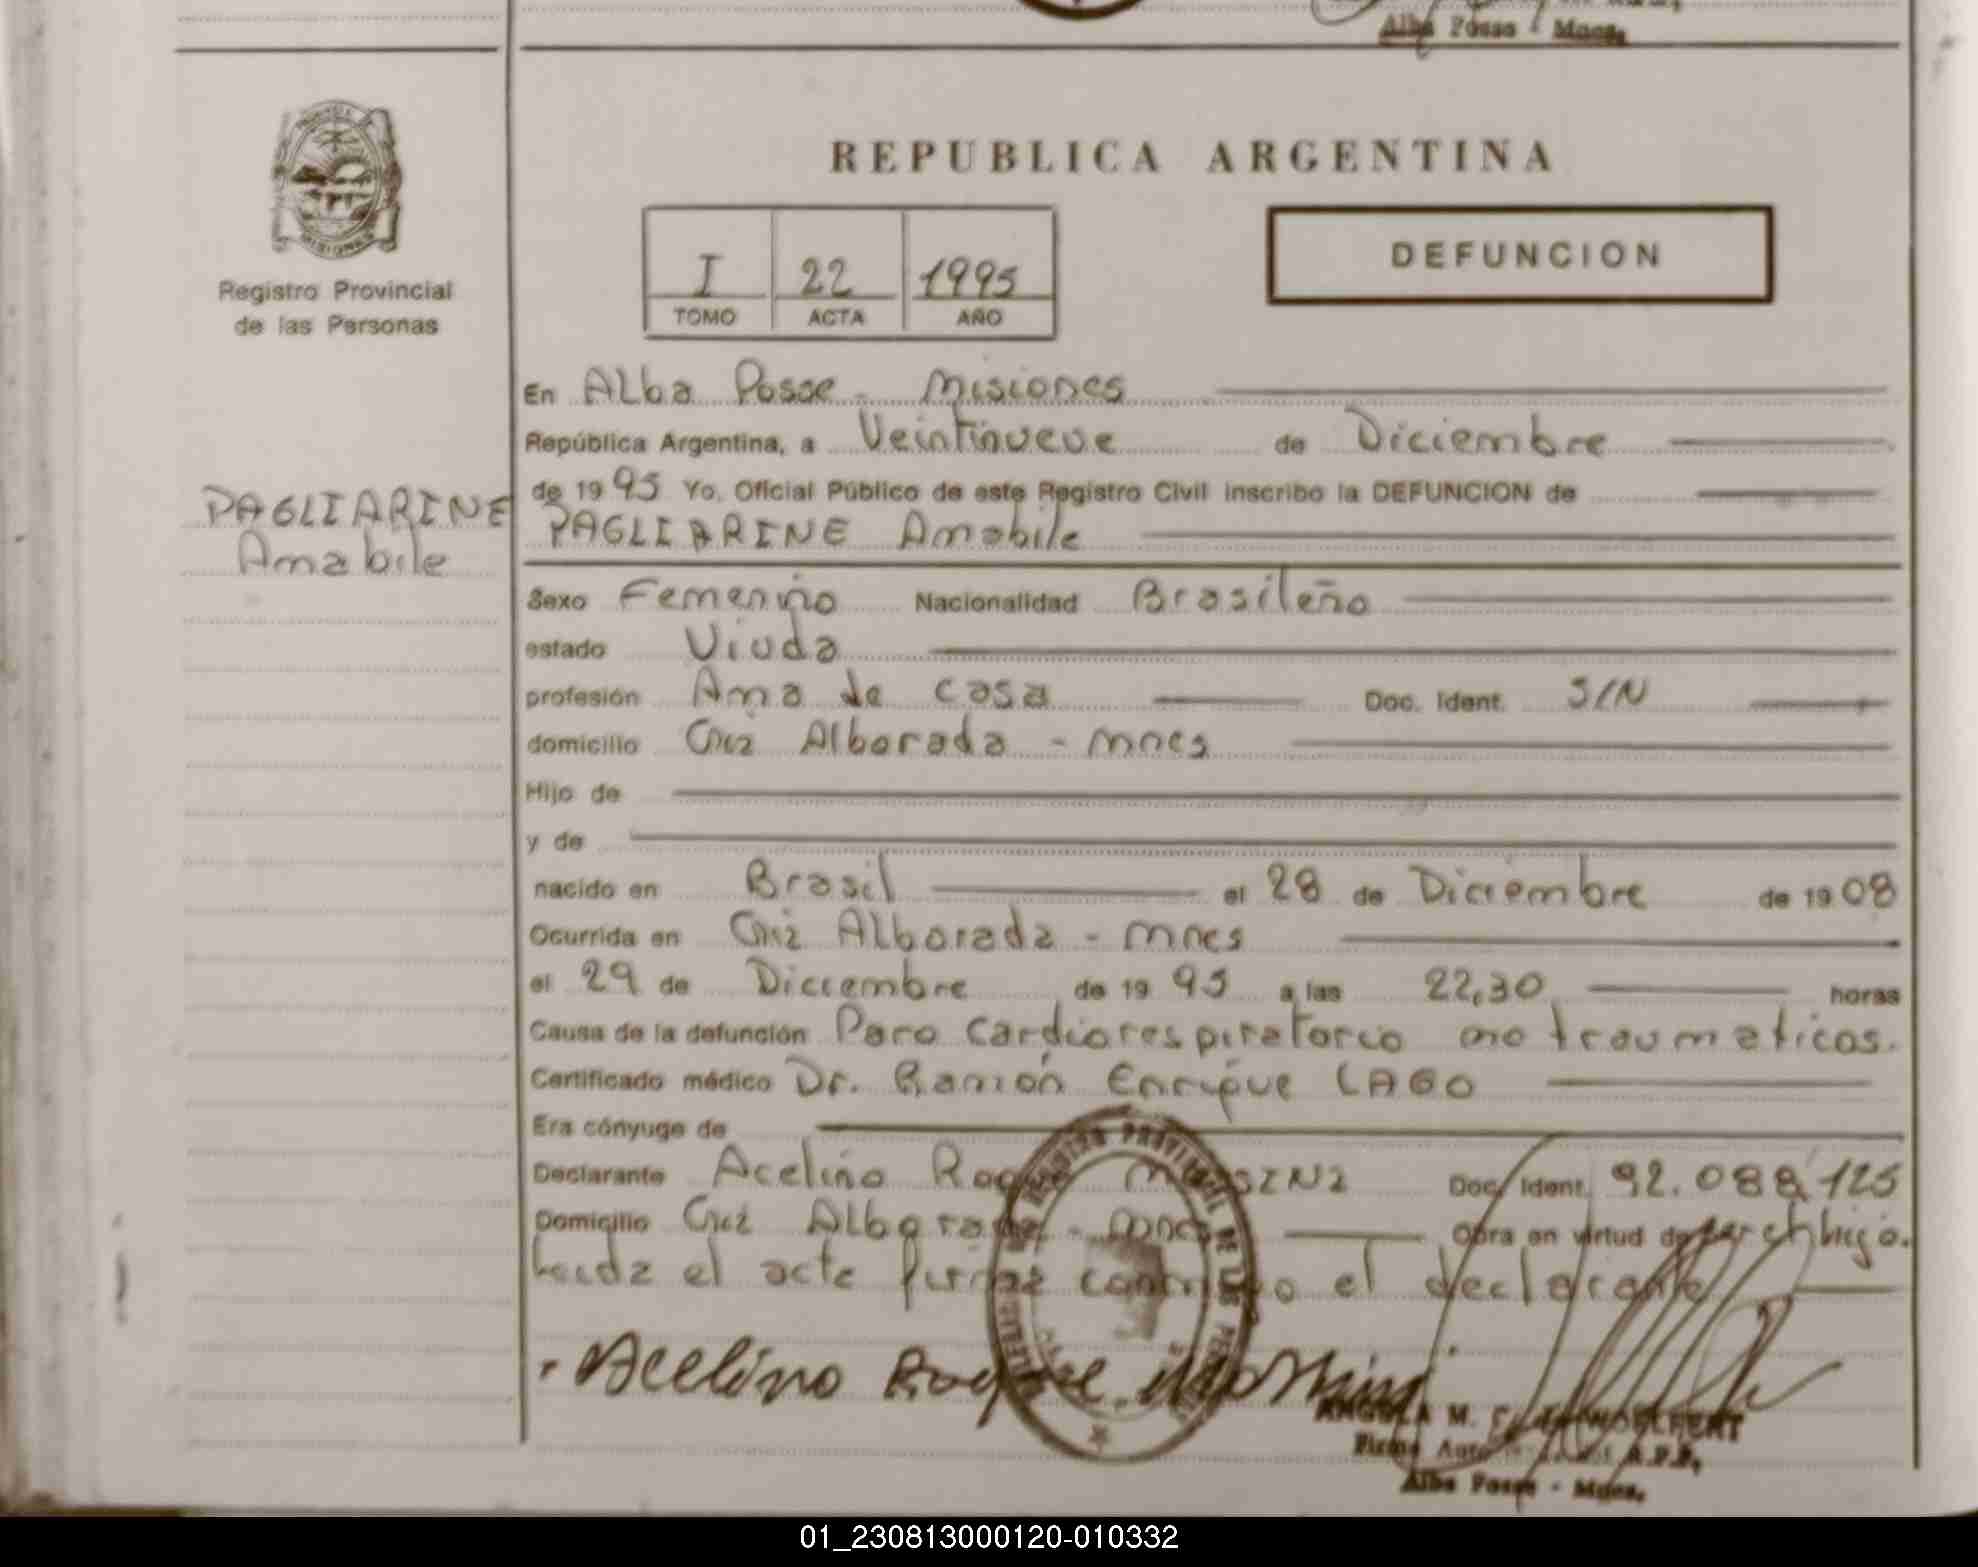 Alba Posse - Mnes.
REPUBLICA ARGENTINA
I 22 1995
TOMO ACTA AÑO
DEFUNCION
PROVINCIA DE
MISIONES
Registro Provincial
de las Personas
PAGLIARINE
Amabile
En Alba Posse - Misiones
República Argentina, a Veintinueve de Diciembre
de 1995 Yo, Oficial Público de este Registro Civil inscribo la DEFUNCION de
PAGLIARINE Amabile
Sexo Femenino Nacionalidad Brasileño
estado Viuda
profesión Ama de casa Doc. Ident. S/N
domicilio Alborada - Mnes
Hijo de
y de
nacido en Brasil el 28 de Diciembre de 1908
Ocurrida en Alborada - Mnes
el 29 de Diciembre de 1995 a las 22,30 horas
Causa de la defunción Paro cardiorespiratorio no traumaticos.
Certificado médico Dr. Ramón Enrique LAGO
Era cónyuge de
Declarante Acelino Doc. Ident. 92.088.125
Domicilio Alborada - Mnes Obra en virtud de ser el hijo.
Leida el acta firma conmigo el declarante
Acelino Roque
ANGELA M. WOELFERT
Firma
Alba Posse - Mnes.
01_230813000120-010332